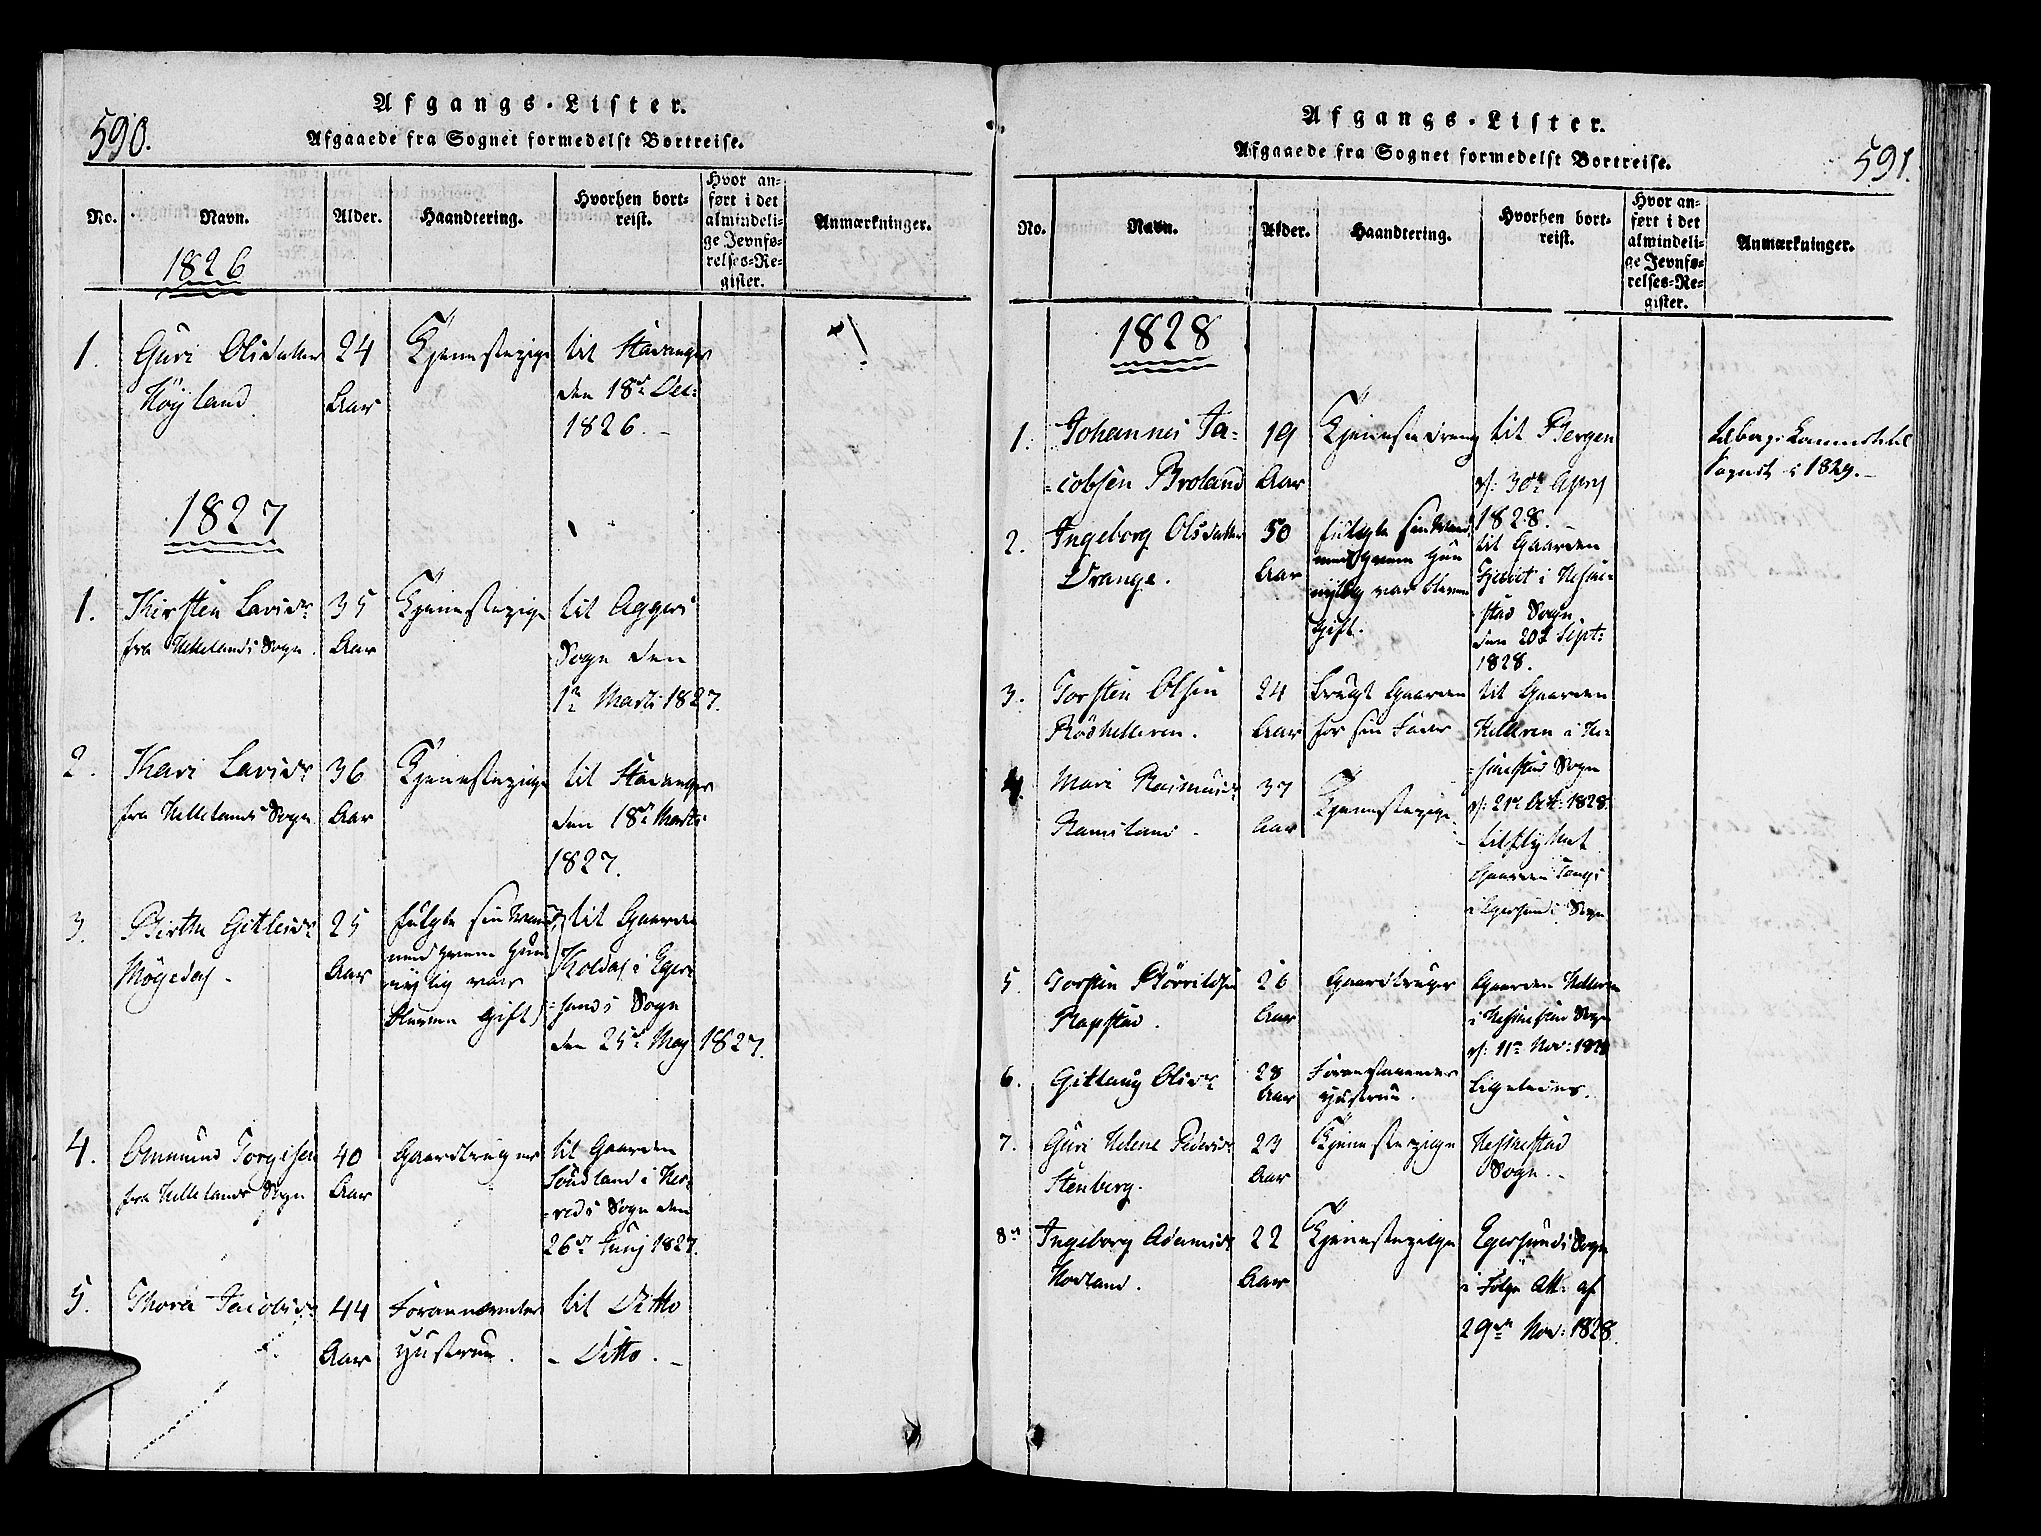 590.
Afgangs-Lister.
Afgaaede fra Sognet formedelst Bortreise.
No.
Navn.
Alder.
Haandtering.
Hvorhen bort-
reist.
Hvor an-
ført i det
almindeli-
ge Jevnfø-
relses-Re-
gister.
Anmærkninger.
1826
1.
Guri Olsdatter
Höyland
24
Aar
Tjenestepige
til Stavanger
den 18de Dec:
1826.
1827
1.
Kirsten Larsdr
fra Hellelands Sogn
35
Aar
Tjenestepige
til Aggers
Sogn den
1ste Marts 1827.
2.
Kari Larsdr
fra Hellelands Sogn
36
Aar
Tjenestepige
til Stavanger
den 18de Marts
1827.
3.
Birthe Gitlesdr
Mögedal
25
Aar
fulgte sin Mand
med hvem hun
nylig var
bleven gift)
til Gaarden
Koldal i Eger-
sunds Sogn
den 25de Maj 1827.
4.
Ommund Torgisen
fra Hellelands Sogn
40
Aar
Gaardbruger
til Gaarden
i Her-
reds Sogn den
26de Junj 1827.
5.
Thora Jacobsdr
44
Aar
Forannævntes
Hustrue.
til Ditto
- Ditto. -
591.
Afgangs-Lister.
Afgaaede fra Sognet formedelst Bortreise.
No.
Navn.
Alder.
Haandtering.
Hvorhen bort-
reist.
Hvor an-
ført i det
almindeli-
ge Jevnfø-
relses-Re-
gister.
Anmærkninger.
1828
1.
Johannes Ja-
cobsen Broland
19
Aar
Tjenestedreng
til Bergen
d: 30te April
1828.
Sognet i 1829.
2.
Ingeborg Olsdatter
Drange.
50
Aar
fulgte sin Mand
med hvem hun
nylig var bleven
gift.
til Gaarden
i Hesne-
stad Sogn
den 20de Sept:
1828.
3.
Torsten Olsen
Rödhelleren.
24
Aar
brugt Gaarden
for sin Fader
til Gaarden
Helleren i He-
snestad Sogn
d: 21de Oct: 1828.
4.
Mari Rasmusdr
Ramsland
37
Aar
Tjenestepige
tilflyttet
Gaarden
i Egersunds Sogn
5.
Torsten
Rapstad.
26
Aar
Gaardbruger
Gaarden Helleren
i Hesnestad Sogn
d: 11te Nov: 1828
6.
Gitlaug Olsdr
28
Aar
Foranstaaendes
Hustrue.
Ligeledes.
7.
Guri Helene Pedersdr
Stenberg.
23
Aar
Tjenestepige
Hesnestad
Sogn.
8.
Ingeborg Adamsdr
Hovland.
22
Aar
Tjenestepige
Egersunds Sogn
i Følge Att: af
29de Nov: 1828.